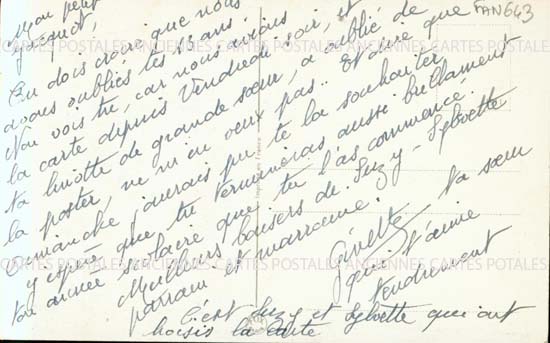 Mon petit
Jacquot,
FANE643
Tu dois croire que nous
avons oubliés tes 13 ans.
Non vois tu, car nous avions
la carte depuis Vendredi soir, et
ta linotte de grande sœur, a oublié de
la poster, ne m'en veux pas.. Et dire que
Dimanche j'aurais pu te la souhaiter
J'espère que tu termineras aussi brillament
ton année scolaire que tu l'as commencé.
Meilleurs baisers de Suzy - Sylvette
parrain et marraine.
Ginette ta sœur
qui t'aime
tendrement
C'est Suzy et Sylvette qui ont
choisis la carte
CARTES POSTALES ANCIENNES CARTES POSTALES